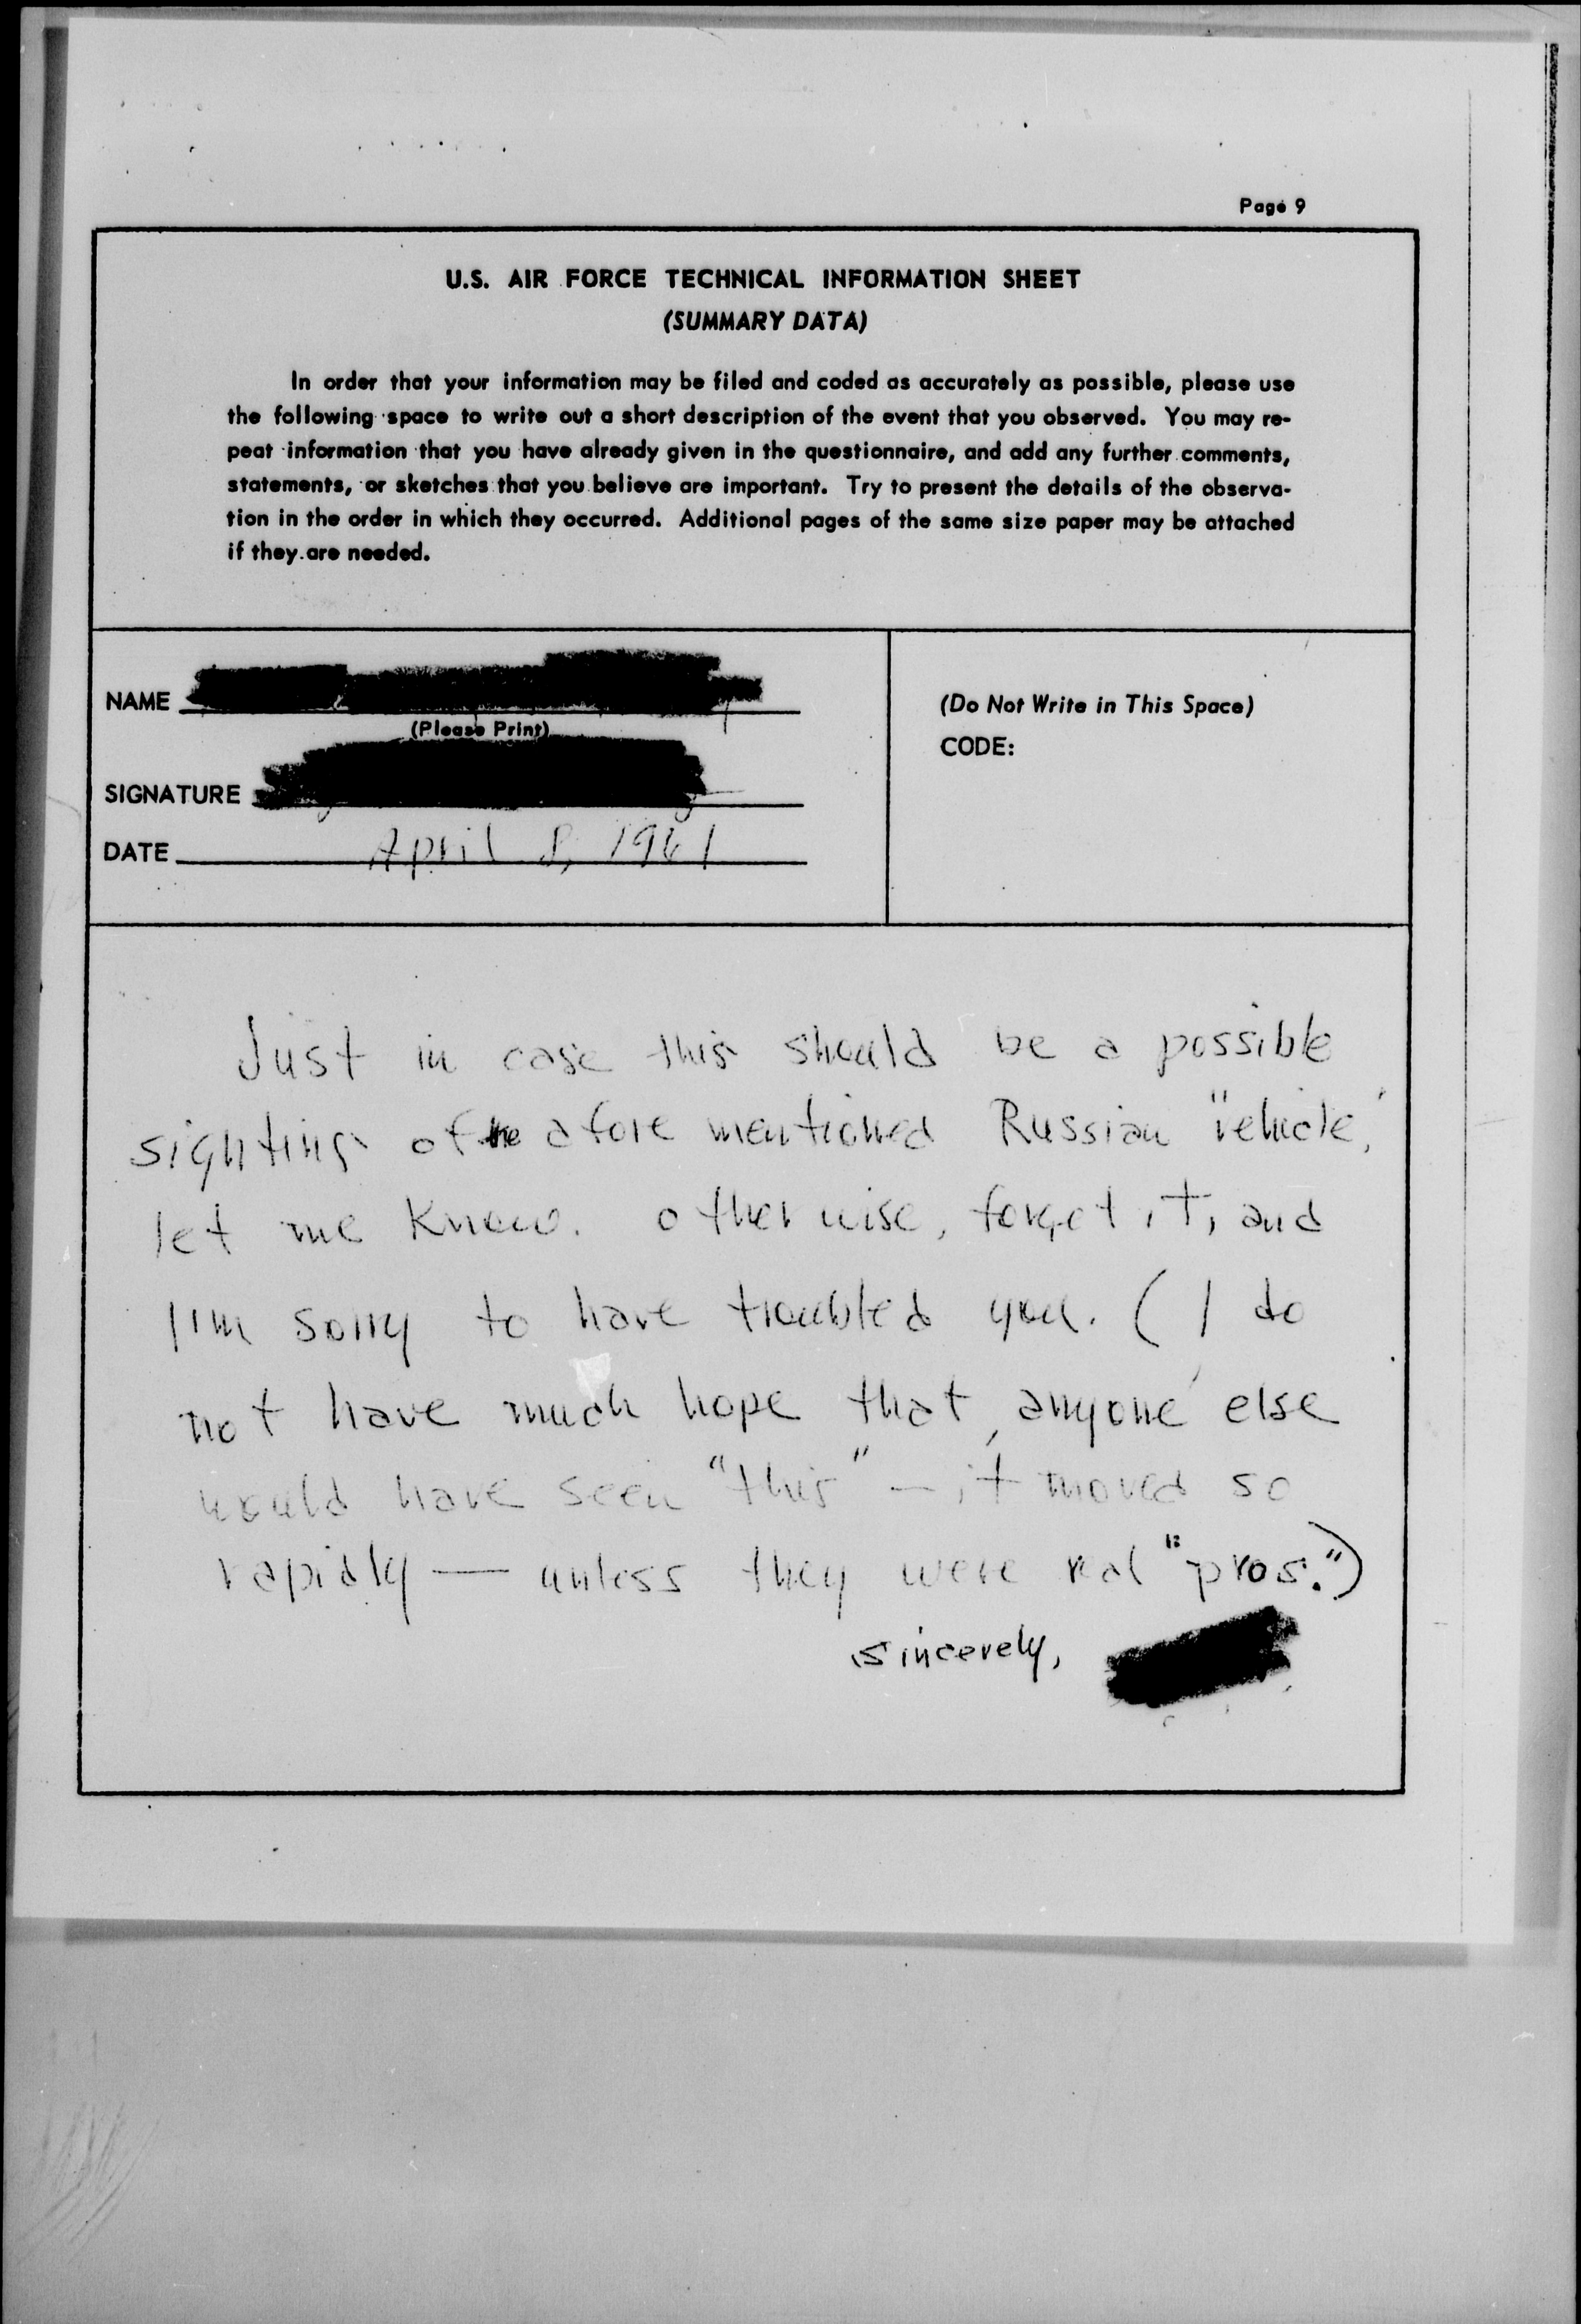 Page 9
U.S. AIR FORCE TECHNICAL INFORMATION SHEET
(SUMMARY DATA)
In order that your information may be filed and coded as accurately as possible, please use
the following space to write out a short description of the event that you observed. You may re-
peat information that you have already given in the questionnaire, and add any further comments,
statements, or sketches that you believe are important. Try to present the details of the observa-
tion in the order in which they occurred. Additional pages of the same size paper may be attached
if they are needed.
NAME
(Please Print)
SIGNATURE
DATE April 8, 1961
(Do Not Write in This Space)
CODE:
Just in case this should be a possible
sighting of the afore mentioned Russian "vehicle,"
let me know. otherwise, forget it, and
I'm sorry to have troubled you. (I do
not have much hope that anyone else
would have seen "this" — it moved so
rapidly — unless they were real "pros.")
sincerely,